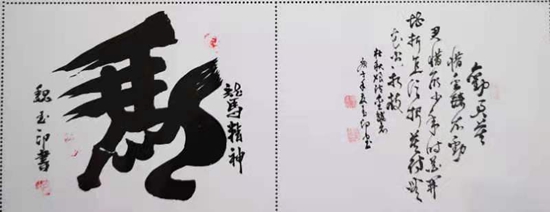 馬
龍馬精神
魏玉印書
勸君莫
惜金縷衣勸
君惜取少年時花開
堪折直須折莫待無
花空折枝
杜秋娘詩金縷衣